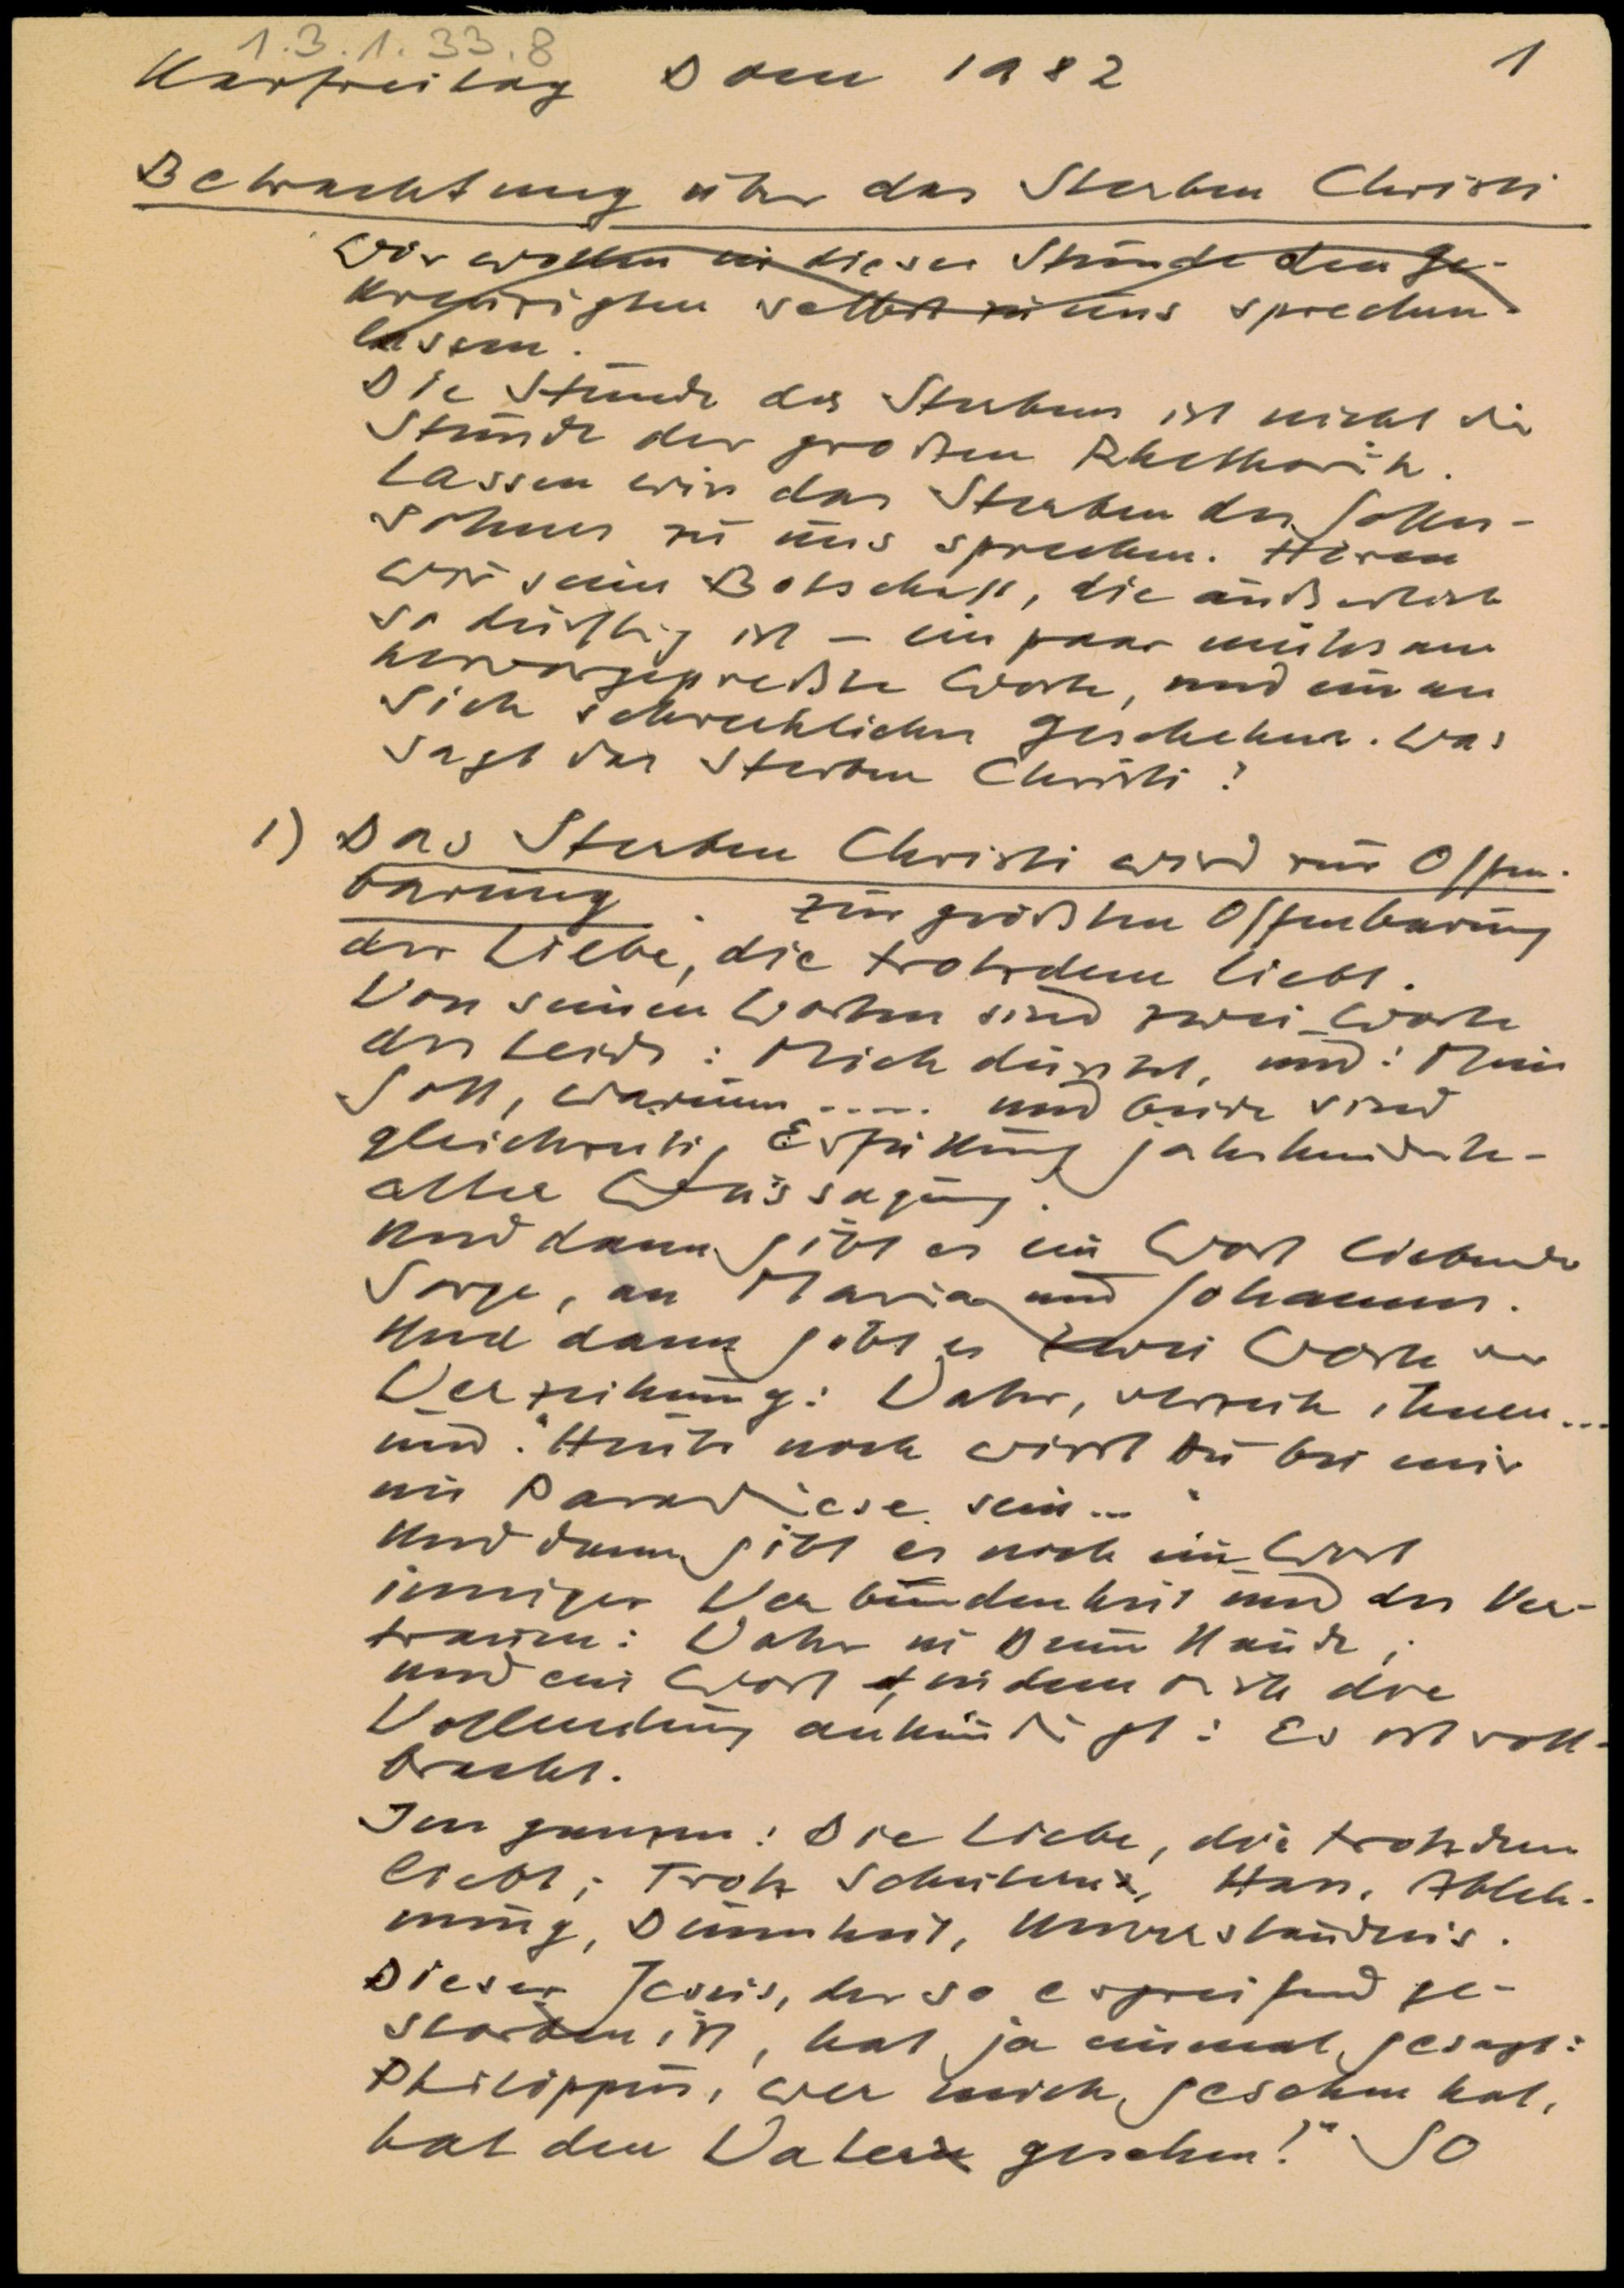 1.3.1.33.8
Karfreitag Dom 1982 1
Betrachtung über das Sterben Christi
Wir wollen in dieser Stunde den Ge-
kreuzigten selbst zu uns sprechen
lassen.
Die Stunde des Sterbens ist nicht die
Stunde der großen Rhethorik.
Lassen wir das Sterben des Gottes-
sohnes zu uns sprechen. Hören
wir seine Botschaft, die äußerlich
so dürftig ist – ein paar mühsam
hervorgepreßte Worte, und ein an
sich schreckliches Geschehen. Was
sagt das Sterben Christi?
1) Das Sterben Christi wird zur Offen-
barung. Zur größten Offenbarung
der Liebe, die trotzdem liebt.
Von seinen Worten sind zwei Worte
des Leids: Mich dürstet, und: Mein
Gott, warum ..... und beide sind
gleichzeitig Erfüllung jahrhunderte-
alter Weissagung.
Und dann gibt es ein Wort liebender
Sorge, an Maria und Johannes.
Und dann gibt es zwei Worte der
Verzeihung: Vater, verzeih ihnen...
und: "Heute noch wirst Du bei mir
im Paradiese sein..."
Und dann gibt es noch ein Wort
inniger Verbundenheit und des Ver-
trauens: Vater in Deine Hände,
und ein Wort, in dem sich die
Vollendung ankündigt: Es ist voll-
bracht.
Im ganzen: Die Liebe, die trotzdem
liebt; Trotz Scheitern, Hass, Ableh-
nung, Dummheit, Unverständnis.
Dieser Jesus, der so ergreifend ge-
storben ist, hat ja einmal gesagt:
Philippus, wer mich gesehen hat,
hat den Vater gesehen!" So